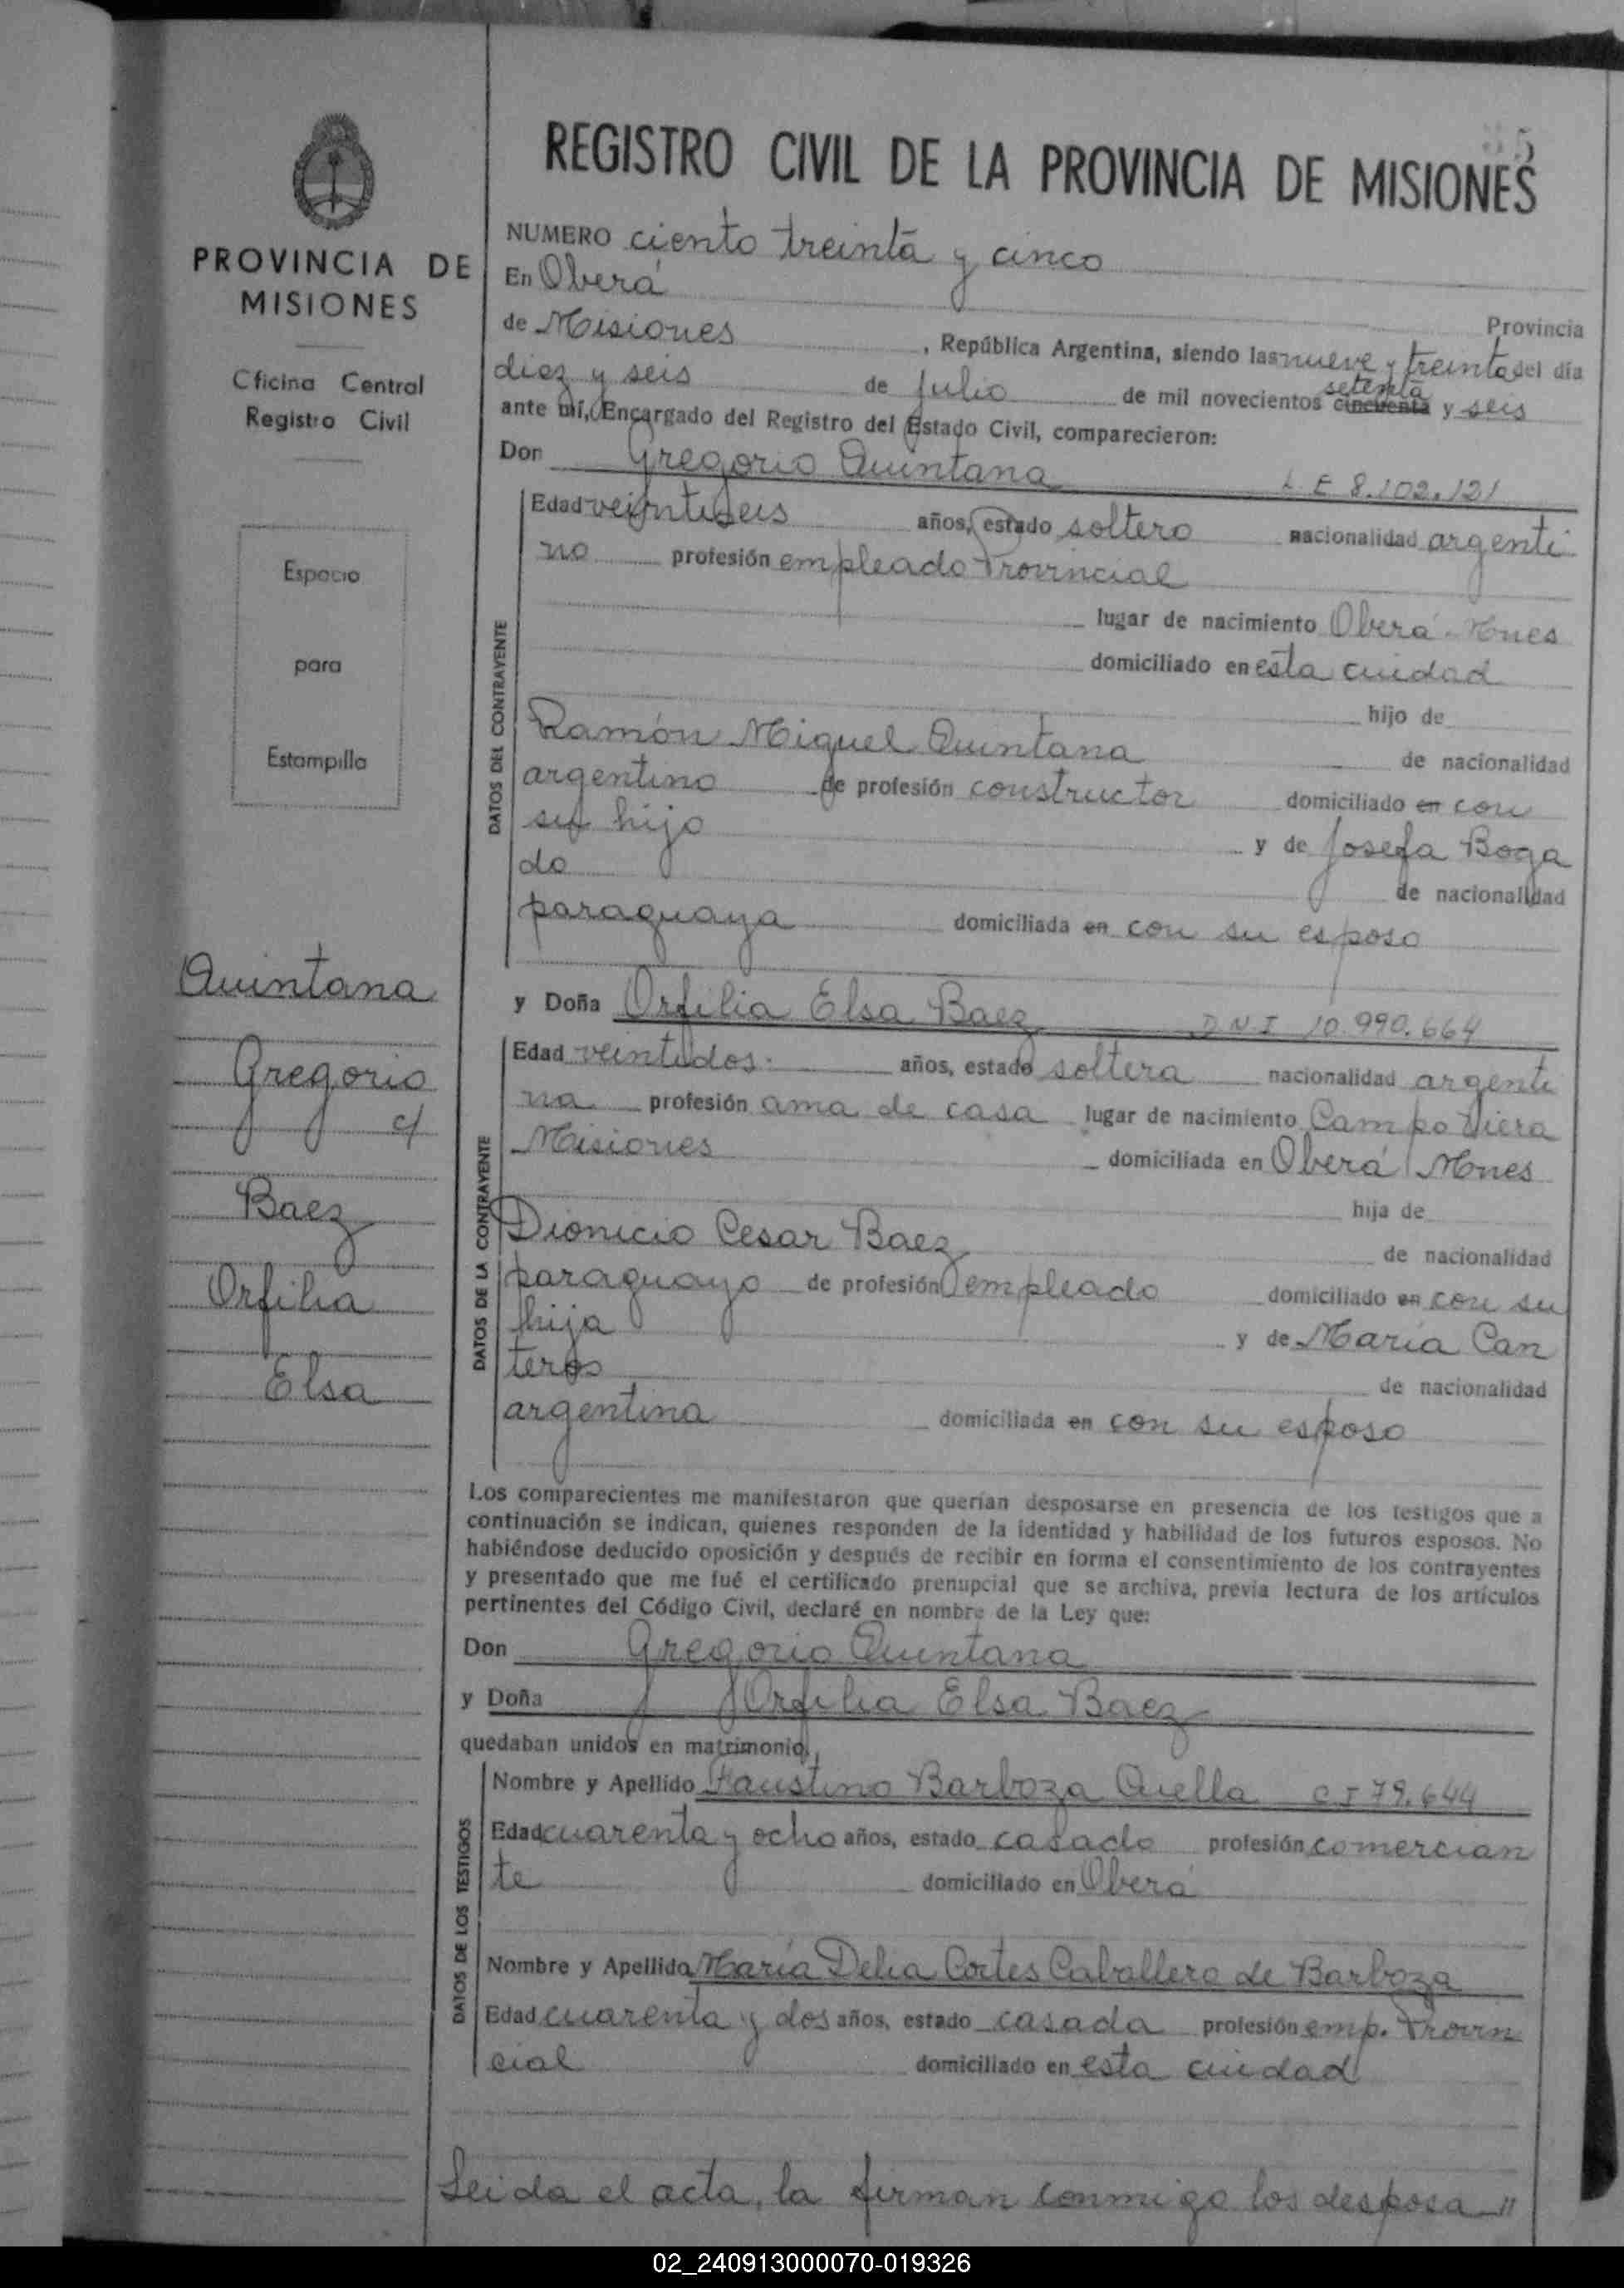 35
REGISTRO CIVIL DE LA PROVINCIA DE MISIONES
PROVINCIA DE
MISIONES
Oficina Central
Registro Civil
Espacio
para
Estampilla
Quintana
Gregorio
c/
Baez
Orfilia
Elsa
NUMERO ciento treinta y cinco
En Oberá Provincia
de Misiones, República Argentina, siendo las nueve y treinta del día
diez y seis de julio de mil novecientos setenta cincuenta y seis
ante mí, Encargado del Registro del Estado Civil, comparecieron:
Don Gregorio Quintana L E 8.102.121
DATOS DEL CONTRAYENTE
Edad veintiseis años, estado soltero nacionalidad argenti
no profesión empleado Provincial
lugar de nacimiento Oberá Mnes
domiciliado en esta ciudad
hijo de
Ramón Miguel Quintana de nacionalidad
argentino de profesión constructor domiciliado en con
su hijo y de Josefa Boga
do de nacionalidad
paraguaya domiciliada en con su esposo
y Doña Orfilia Elsa Baez D N I 10.990.664
DATOS DE LA CONTRAYENTE
Edad veintidos años, estado soltera nacionalidad argenti
na profesión ama de casa lugar de nacimiento Campo Viera
Misiones domiciliada en Oberá Mnes
hija de
Dionicio Cesar Baez de nacionalidad
paraguayo de profesión empleado domiciliado en con su
hija y de María Can
teros de nacionalidad
argentina domiciliada en con su esposo
Los comparecientes me manifestaron que querían desposarse en presencia de los testigos que a
continuación se indican, quienes responden de la identidad y habilidad de los futuros esposos. No
habiéndose deducido oposición y después de recibir en forma el consentimiento de los contrayentes
y presentado que me fué el certificado prenupcial que se archiva, previa lectura de los artículos
pertinentes del Código Civil, declaré en nombre de la Ley que:
Don Gregorio Quintana
y Doña Orfilia Elsa Baez
quedaban unidos en matrimonio,
DATOS DE LOS TESTIGOS
Nombre y Apellido Faustino Barboza Quella C I 79.644
Edad cuarenta y ocho años, estado casado profesión comercian
te domiciliado en Oberá
Nombre y Apellido María Delia Cortes Caballero de Barboza
Edad cuarenta y dos años, estado casada profesión emp. Provin
cial domiciliado en esta ciudad
Leida el acta, la firman conmigo los desposa "
02_240913000070-019326